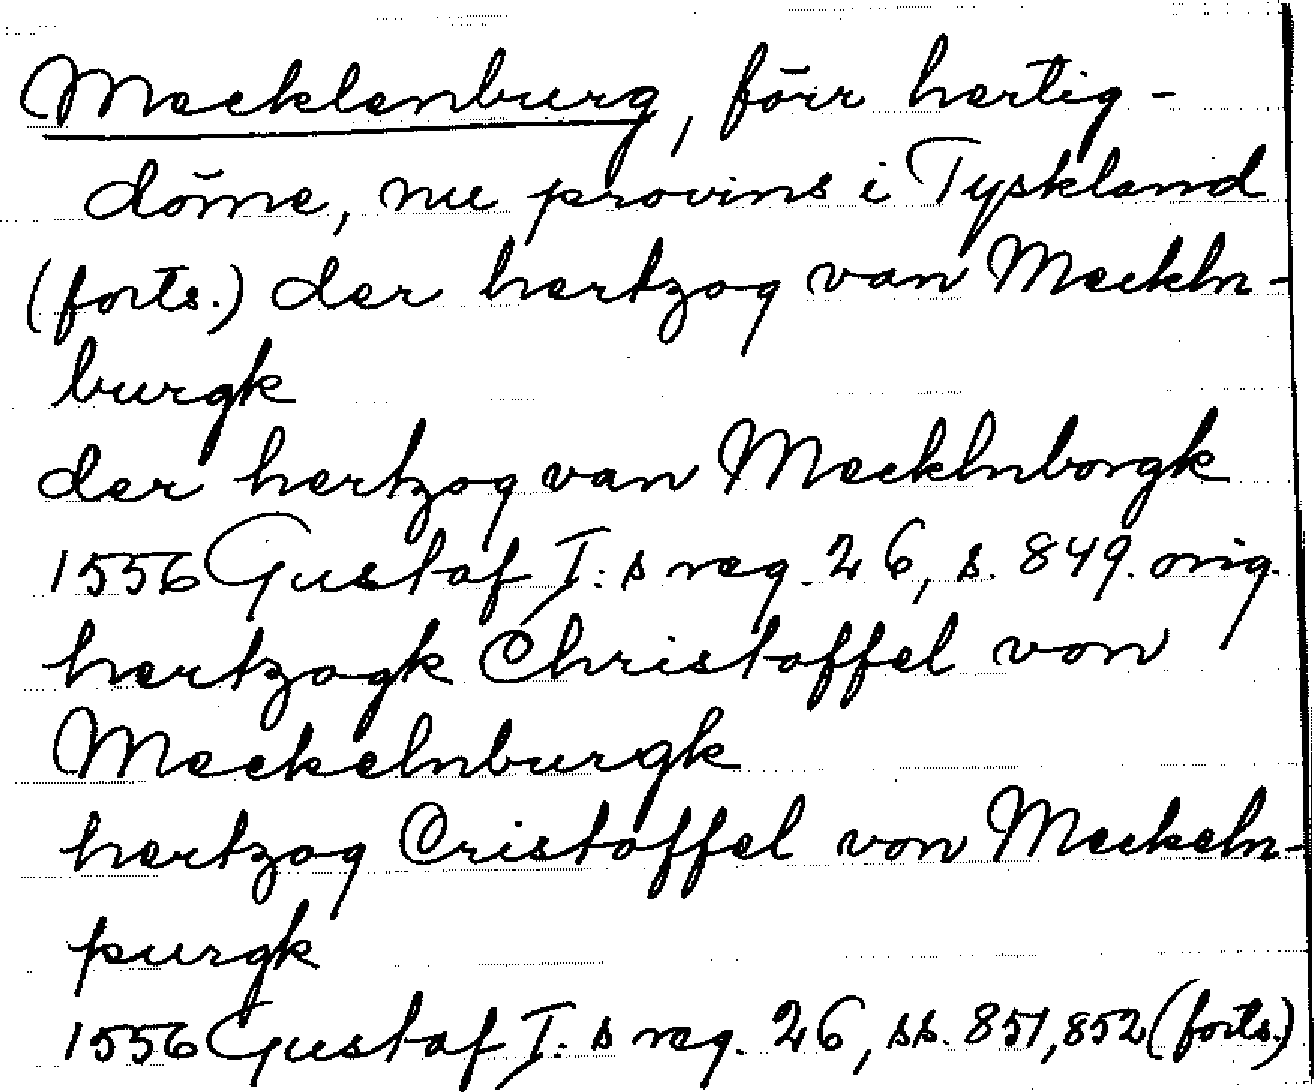 Mecklenburg, förr hertig-
döme, nu provins i Tyskland
(forts.) der hertzog van Meckln-
burgk
der hertzog van Mecklnborgk
1556 Gustaf I:s reg. 26, s. 849. orig.
hertzogk Christoffel von
Meckelnburgk
hertzog Cristoffel von Meckeln-
purgk
1556 Gustaf I:s reg. 26, ss. 851, 852 (forts.)